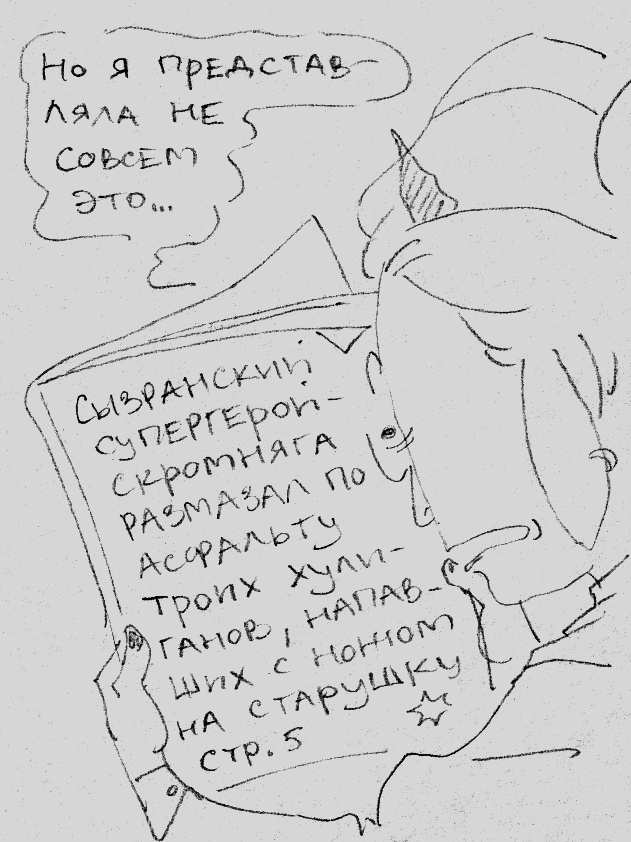 Но я представ-
ляла не
совсем
это...
Сызранский
супергерой-
скромняга
размазал по
асфальту
троих хули-
ганов, напав-
ших с ножом
на старушку
стр. 5